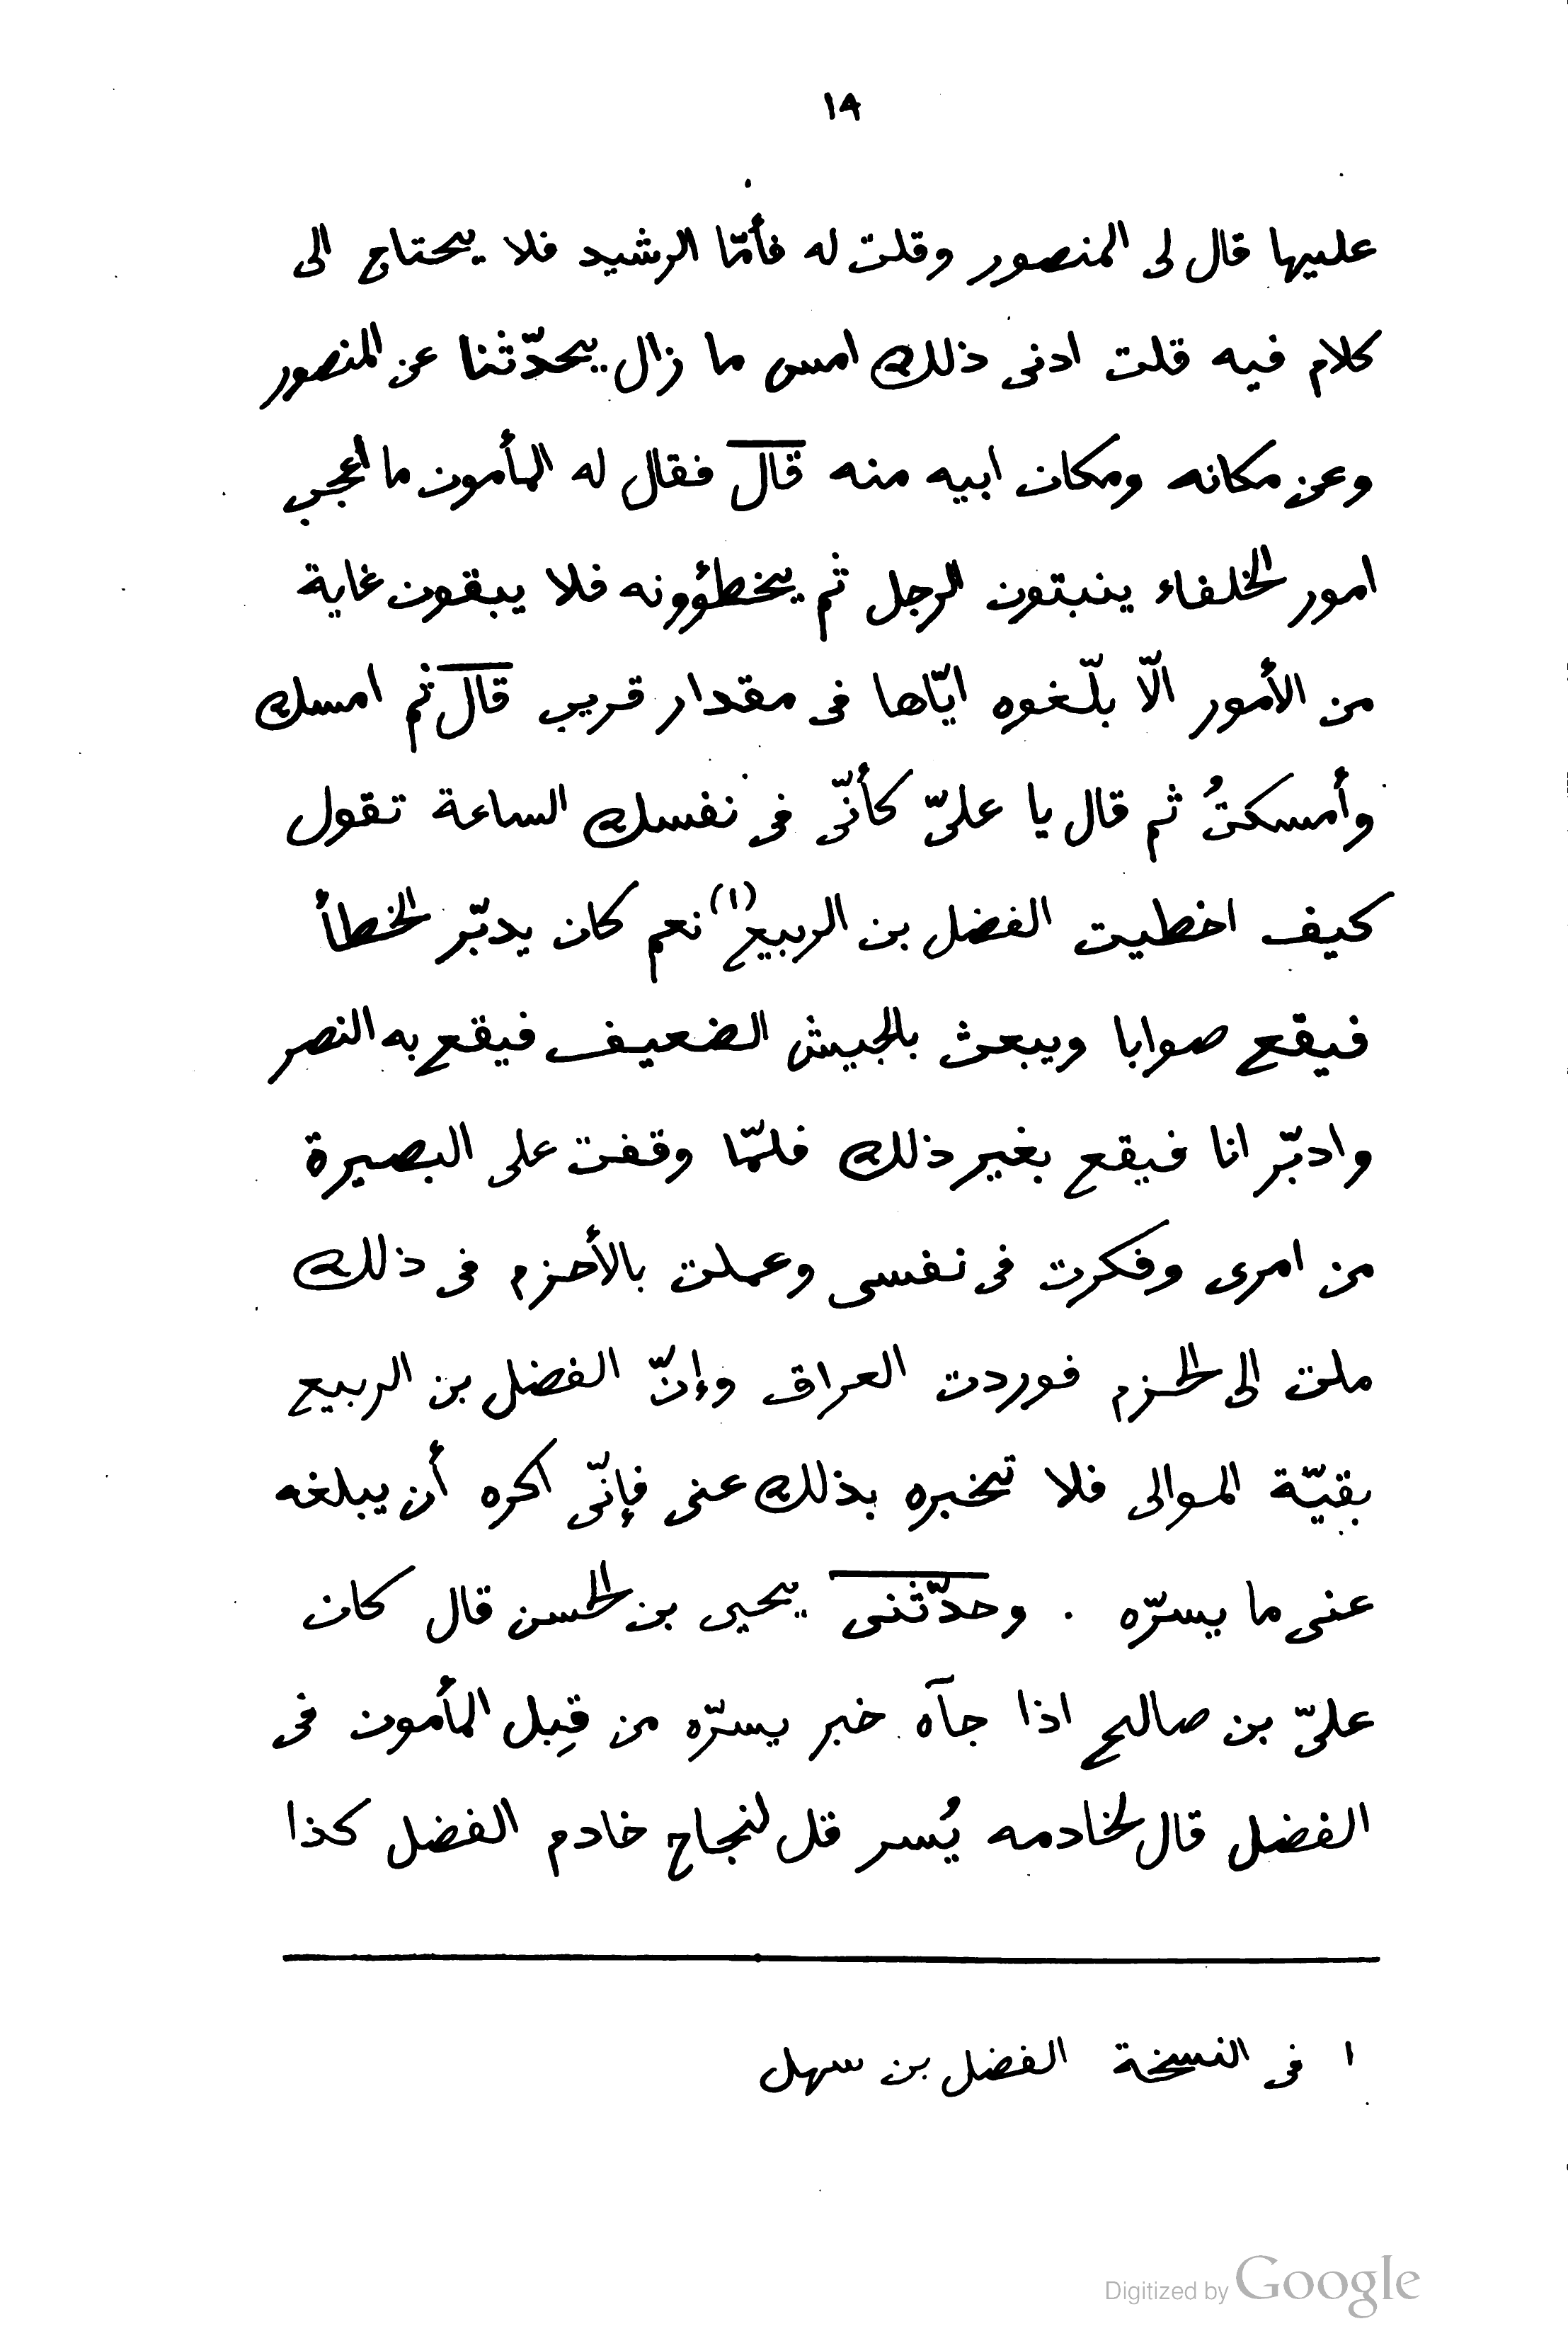 ١٩
عليها قال لى المنصور وقلت له فأمّا الرشيد فلا يحتاج الى
كلام فيه قلت ادنى ذلك امس ما زال يحدّثنا عن المنصور
وعن مكانه ومكان ابيه منه قال فقال له المأمون ما أعجب
امور الخلفاء ينبتون الرجل ثم يخطؤونه فلا يبقون غاية
من الأمور الّا بلّغوه ايّاها فى مقدار قريب قال ثم امسك
وأمسكتُ ثم قال يا علىّ كأنّى فى نفسك الساعة تقول
كيف اخطيت الفضل بن الربيع (١) نعم كان يدبّر الخطأ
فيقع صوابا ويبعث بالجيش الضعيف فيقع به النصر
وادبّر انا فيقع بغير ذلك فلمّا وقفت على البصيرة
من امرى وفكرت فى نفسى وعملت بالأحزم فى ذلك
ملت الى الحزم فوردت العراق وإنّ الفضل بن الربيع
بقيّة الموالى فلا تخبره بذلك عنى فإنّى اكره أن يبلغه
عنى ما يسرّه . وحدّثنى يحيى بن الحسن قال كان
علىّ بن صالح اذا جآه خبر يسرّه من قِبل المأمون فى
الفضل قال لخادمه يُسر قل لنجاح خادم الفضل كذا
١ فى النسخة الفضل بن سهل
Digitized by Google